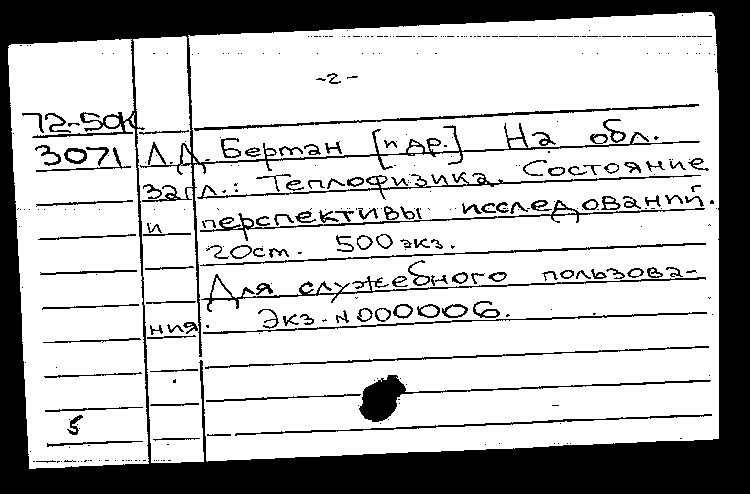 -2-
72-50К
3071 Л.Д. Бертан [и др.] На обл.
загл.: Теплофизика. Состояние
и перспективы исследований.
20ст. 500 экз.
Для служебного пользова-
ния. Экз. N 000006.
5